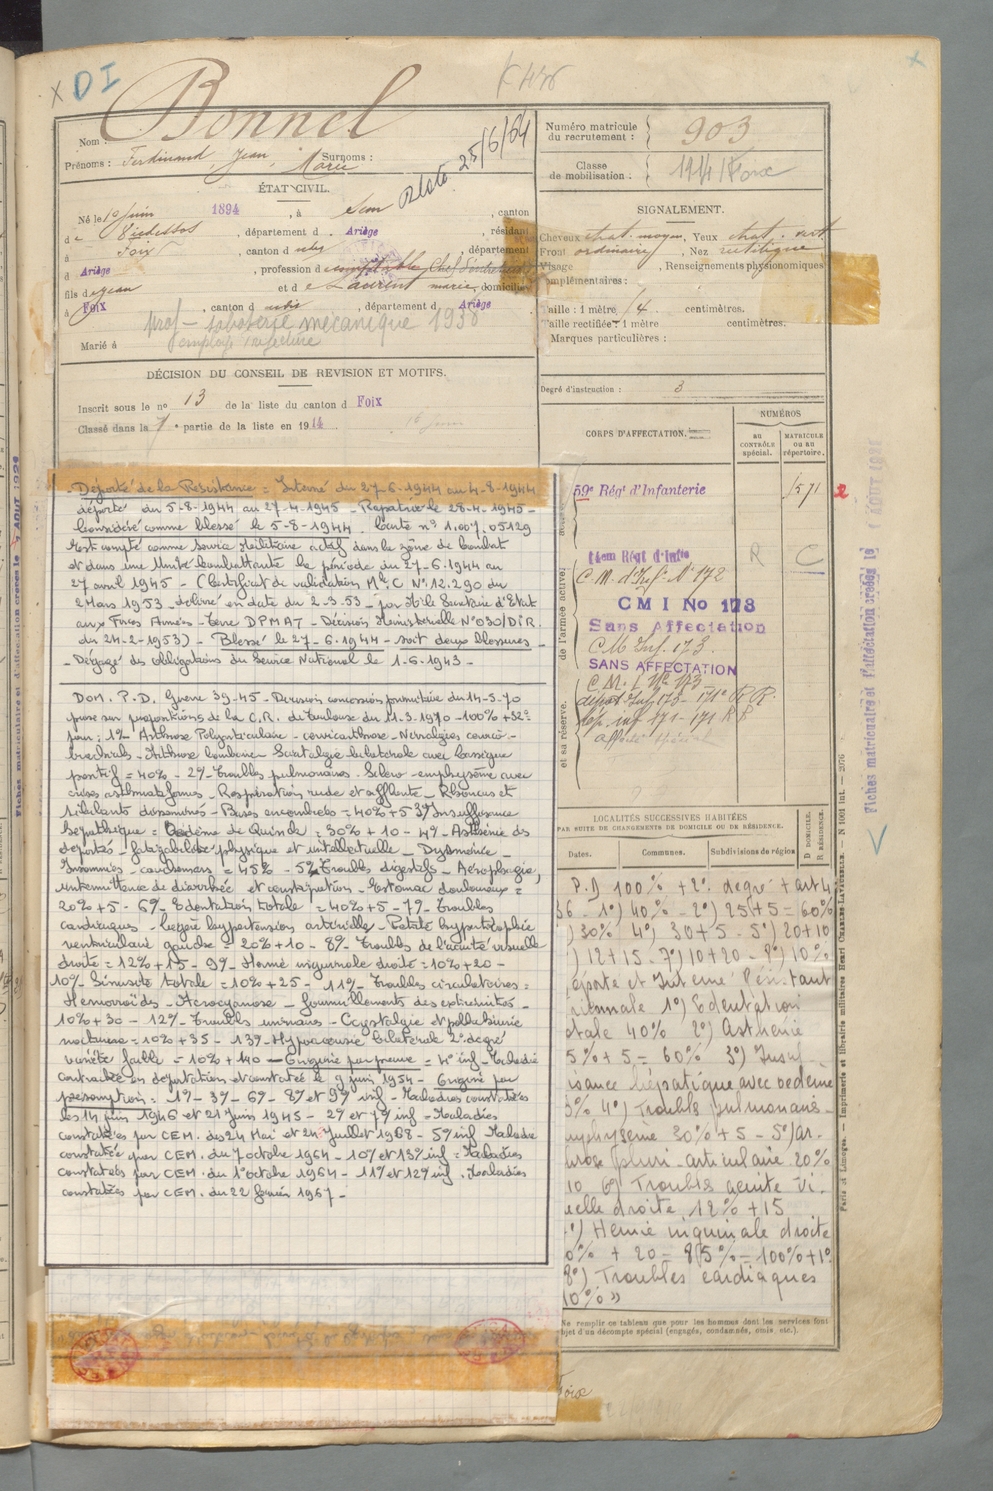 X DI
Bonnel
Nom :
Prénoms : Ferdinand, Jean, Marie Surnoms :
Rlste 25/6/64
Numéro matricule du recrutement : 903
Classe de mobilisation : 1914 / Foix
ÉTAT CIVIL.
Né le 10 Juin 1894, à Sem, canton
de Vicdessos, département d Ariège, résidant
à Foix, canton d udit, département
d Ariège, profession d comptable
fils de Jean et de Laurent marie, domiciliés
à Foix, canton d udit, département d Ariège
prof - taboterie mécanique 1938
Marié à
employé préfecture
SIGNALEMENT.
Cheveux chat. moyen, Yeux chat.
Front ordinaire, Nez rectiligne
Visage , Renseignements physionomiques
complémentaires :
Taille : 1 mètre centimètres.
Taille rectifiée : 1 mètre centimètres.
Marques particulières :
Degré d'instruction : 3
DÉCISION DU CONSEIL DE REVISION ET MOTIFS.
Inscrit sous le no 13 de la liste du canton d Foix
Classé dans la 7e partie de la liste en 1914.
CORPS D'AFFECTATION.
NUMÉROS
AU CONTRÔLE spécial.
MATRICULE OU AU répertoire.
59e Régt d'Infanterie 1571 2
14em Régt d'Inftie R C
C.M. d'Inf. N° 172
CMI No 173
Sans Affectation
C M Inf. 173.
SANS AFFECTATION
C.M. I. N° 173
dépôt Inf 173 - 171e R.R.
Dép. inf 171 - 171 R R
affecté spécial
de l'armée active
et sa réserve.
- Déporté de la Résistance = Interné du 27-6-1944 au 4-8-1944
déporté du 5-8-1944 au 27-4-1945 - Rapatrié le 28-4-1945 -
Considéré comme blessé le 5-8-1944. Carte n° 1.007.05129
Est compté comme service Militaire actif dans la zône de Combat
et dans une Unité Combattante la période du 27-6-1944 au
27 avril 1945 - (Certificat de validation Mle C N° 12.290 du
2 Mars 1953 - delivré en date du 2-3-53 - par Mr le Secrétaire d'Etat
aux Forces Armées - Terre DPMAT - Décision Ministérielle N°030/DIR.
du 24-2-1953) - Blessé le 27-6-1944 - soit deux blessures -
- Dégagé des obligations du Service National le 1.6.1943 -
DOM. P.D. Guerre 39-45 - Décision concession primitive du 14-5-70
prise sur propositions de la C.R. de Toulouse du 11.3.1970 - 100% + 32°
pour : 1°- Arthrose Polyarticulaire - cervicarthrose - Névralgies cervico -
brachiales - Arthrose lombaire - Sciatalgie bilatérale avec Lassègue
positif = 40% - 2°- Troubles pulmonaires. Scléro-emphysème avec
crises asthmatiformes - Respiration rude et soufflante - Rhoncus et
sibilants disséminés - Bases encombrées = 40% + 5 3°) Insuffisance
hépathique = Oedème de Quincke = 30% + 10 - 4°- Asthénie des
déportés - fatigabilité physique et intellectuelle - Dysmnésie -
Insomnies - cauchemars = 45% - 5° Troubles digestifs - Aérophagie,
intermittence de diarrhée et constipation - Estomac douloureux =
20% + 5 - 6°- Edentation totale = 40% + 5 - 7°- Troubles
cardiaques - légère hypertension artérielle - Petite hypertrophie
ventriculaire gauche = 20% + 10 - 8°- Troubles de l'acuité visuelle
droite = 12% + 15 - 9°- Hernie inguinale droite = 10% + 20 -
10°- Sinusite totale = 10% + 25 - 11°- Troubles circulatoires =
Hémorroïdes - Acrocyanose - fourmillements des extrémités -
10% + 30 - 12°- Troubles urinaires - Cystalgie et pollakiurie
nocturne = 10% + 35 - 13°- Hypoacousie bilatérale 2° degré
variété faible = 10% + 40 - Origine par preuve = 4° inf - Maladie
contractée en déportation et constatée le 9 juin 1954 - Origine par
présomption = 1°- 3°- 6°- 8° et 9° inf - Maladies constatées
les 14 juin 1946 et 21 Juin 1945 - 2° et 7° inf = Maladies
constatées par CEM. des 24 Mai et 24 Juillet 1968 - 5° inf Maladie
constatée par CEM. du 7 octobre 1964 - 10° et 13° inf = Maladies
constatées par CEM. du 1° octobre 1964 - 11° et 12° inf. Maladies
constatées par CEM. du 22 février 1967 -
LOCALITÉS SUCCESSIVES HABITÉES
PAR SUITE DE CHANGEMENTS DE DOMICILE OU DE RÉSIDENCE.
Dates. Communes. Subdivisions de région
D DOMICILE.
R RÉSIDENCE.
P.D 100% + 2° degré + art 4
36 - 1°) 40% - 2°) 25+5 = 60%
) 30% 4°) 30+5 - 5°) 20+10
) 12+15 - 7°) 10+20 - 8°) 10%
éporté et Interné Résistant
iennale 1°) Edentation
otale 40% 2°) Asthénie
5%+5 = 60% 3°) Insuf-
isance hépatique avec oedème
% 4°) Troubles pulmonaires -
mphysème 30%+5 - 5°) Ar-
hrose pluri-articulaire 20%
10 6°) Troubles acuité vi-
uelle droite 12% +15
°) Hernie inguinale droite
0% + 20 - 85% = 100%+1°
8°) Troubles cardiaques
10% »
Ne remplir ce tableau que pour les hommes dont les services font
objet d'un décompte spécial (engagés, condamnés, omis etc.).
Foix
Paris et Limoges. — Imprimerie et librairie militaires Henri CHARLES-LAVAUZELLE. — N 1001 int. — 2076
Fiches matriculaire et d'affectation créées le